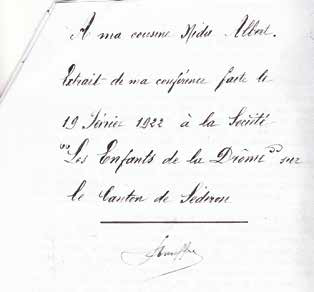 A ma cousine Albert.
Extrait de ma conférence faite le
19 Février 1922 à la Société
"Les Enfants de la Drôme" sur
le Canton de Séderon